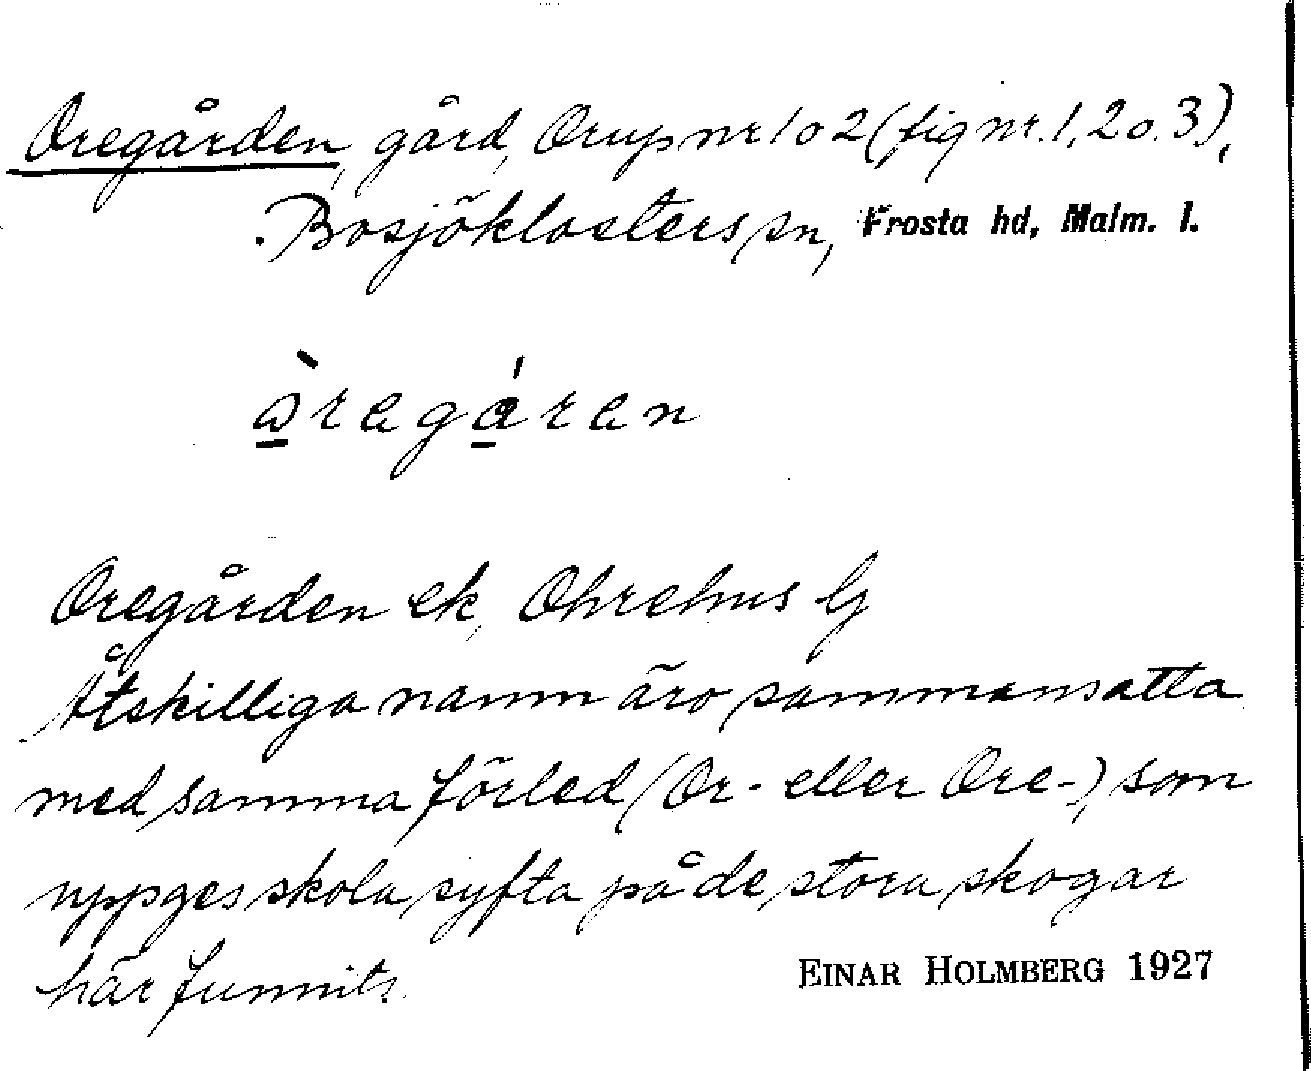 Oregården, gård, Orup nr 1 o 2 (fig nr. 1, 2 o. 3),
Bosjöklosters sn, Frosta hd, Malm. l.
Oregården ek, Ohrehus G
Åtskilliga namn äro sammansatta
med samma förled (Or- eller Ore-), som
uppges skola syfta på de stora skogar
här funnits.
EINAR HOLMBERG 1927